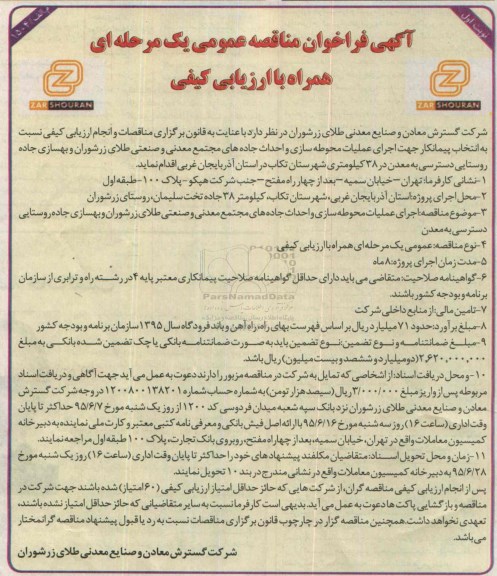 نوبت اول
آگهی فراخوان مناقصه عمومی یک مرحله ای
همراه با ارزیابی کیفی
ZAR SHOURAN
ZAR SHOURAN
شرکت گسترش معادن و صنایع معدنی طلای زرشوران در نظر دارد با عنایت به قانون برگزاری مناقصات و انجام ارزیابی کیفی نسبت
به انتخاب پیمانکار جهت اجرای عملیات محوطه سازی و احداث جاده های مجتمع معدنی و صنعتی طلای زرشوران و بهسازی جاده
روستایی دسترسی به معدن در ۳۸ کیلومتری شهرستان تکاب در استان آذربایجان غربی اقدام نماید.
۱- نشانی کارفرما: تهران – خیابان سمیه – بعد از چهار راه مفتح – جنب شرکت هپکو – پلاک ۱۰۰ – طبقه اول
۲- محل اجرای پروژه: استان آذربایجان غربی، شهرستان تکاب، کیلومتر ۳۸ جاده تخت سلیمان، روستای زرشوران
۳- موضوع مناقصه: اجرای عملیات محوطه سازی و احداث جاده های مجتمع معدنی و صنعتی طلای زرشوران و بهسازی جاده روستایی
دسترسی به معدن
۴- نوع مناقصه: عمومی یک مرحله ای همراه با ارزیابی کیفی
۵- مدت زمان اجرای پروژه: ۸ ماه
۶- گواهینامه صلاحیت: متقاضی می باید دارای حداقل گواهینامه صلاحیت پیمانکاری معتبر پایه ۴ در رشته راه و ترابری از سازمان
برنامه و بودجه کشور باشند.
ParsNamadData
۷- تامین مالی: از منابع داخلی شرکت
۸- مبلغ برآورد: حدود ۷۱ میلیارد ریال بر اساس فهرست بهای راه، راه آهن و باند فرودگاه سال ۱۳۹۵ سازمان برنامه و بودجه کشور
۹- مبلغ ضمانتنامه و نوع تضمین: نوع تضمین باید به صورت ضمانتنامه بانکی یا چک تضمین شده بانکی به مبلغ
۲,۶۲۰,۰۰۰,۰۰۰ (دو میلیارد و ششصد و بیست میلیون) ریال باشد.
۱۰- و محل دریافت اسناد: از اشخاصی که تمایل به شرکت در مناقصه مزبور را دارند دعوت به عمل می آید جهت آگاهی و دریافت اسناد
مربوطه پس از واریز مبلغ ۳/۰۰۰/۰۰۰ ریال (سیصد هزار تومن) به شماره حساب شماره ۱۲۰۰۸۰۰۱۳۸۲۰۱ در وجه شرکت گسترش
معادن و صنایع معدنی طلای زرشوران نزد بانک سپه شعبه میدان فردوسی کد ۱۲۰۰ از روز یک شنبه مورخ ۹۵/۶/۷ حداکثر تا پایان
وقت اداری (ساعت ۱۶) روز سه شنبه مورخ ۹۵/۶/۱۶ با ارائه اصل فیش بانکی و معرفی نامه کتبی معتبر و کارت ملی نماینده به دبیرخانه
کمیسیون معاملات واقع در تهران، خیابان سمیه، بعد از چهار راه مفتح، روبروی بانک تجارت، پلاک ۱۰۰ طبقه اول مراجعه نمایند.
۱۱- زمان و محل تحویل اسناد: متقاضیان مکلفند پیشنهادهای خود را حداکثر تا پایان وقت اداری (ساعت ۱۶) روز یک شنبه مورخ
۹۵/۶/۲۸ به دبیرخانه کمیسیون معاملات واقع در نشانی مندرج در بند ۱۰ تحویل نمایند.
پس از انجام ارزیابی کیفی مناقصه گران، از شرکت هایی که حائز حداقل امتیاز ارزیابی کیفی (۶۰ امتیاز) شده باشند جهت شرکت در
مناقصه و بازگشایی پاکت ها دعوت به عمل می آید. بدیهی است کارفرما نسبت به سایر متقاضیانی که حائز حداقل امتیاز نشده باشند،
تعهدی نخواهد داشت. همچنین مناقصه گزار در چارچوب قانون برگزاری مناقصات نسبت به رد یا قبول پیشنهاد مناقصه گرا مختار
می باشد.
شرکت گسترش معادن و صنایع معدنی طلای زرشوران